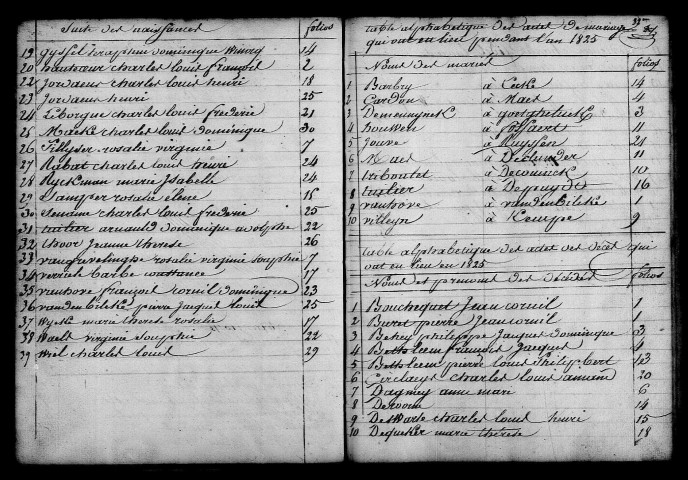 Suite des naissances folios
19 gyssel seraphin dominique 14
20 hautoeur charles louis françois 2
22 jordaens charles louis henri 18
23 jordaens henri 25
24 Leborgne charles louis frederic 21
25 Maeke charles louis dominique 30
26 Pillyser rosalie virginie 7
27 Rabat charles louis henri 24
28 Ryckman marie Isabelle 24
29 rosalie elene 15
30 charles louis frederic 25
31 tailier arnauld dominique adolphe 22
32 thoor jeanne therese 26
33 vangrevelinghe rosalie virginie souphie 7
34 verriele barbe constance 17
35 vanhove françois corneil dominique 23
36 vanden bilcke pierre jacques louis 25
37 Wyske marie therese rosalie 17
38 Waels virginie souphie 22
39 Wiel charles louis 29
table alphabetique des actes de mariage
qui ont eu lieu pendant l'an 1825
Noms des mariés folios
1 Barbry à Cocke 14
2 Cardon à Maes 4
3 Demeuynck à 3
4 houwen à 11
5 jouve à Ruyssen 21
6 Maes à Declunder 11
7 triboulet à Deconinck 10
8 tailier à 16
9 vanhove à vanden Bilcke 1
10 villeyn à Kempe 9
table alphabetique des actes des décès qui
ont eu lieu en 1825
Noms et prenoms des décédés folios
1 Bouchequet Jean corneil 1
2 Buret pierre Jean corneil 1
3 philippe Jaques dominique 3
4 Bethleem françois jacques 4
5 Bethleem pierre louis Philipbert 13
6 Cirelaeys charles louis amand 20
7 Dagmey anne marie 6
8 Decoorne 14
9 DeWarte charles louis henri 15
10 Dequeker marie therese 18